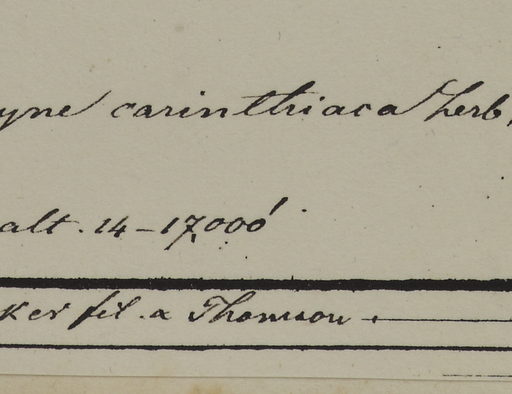 yne carinthiaca Herb.
alt. 14-17,000'
ker fil. a Thomson.